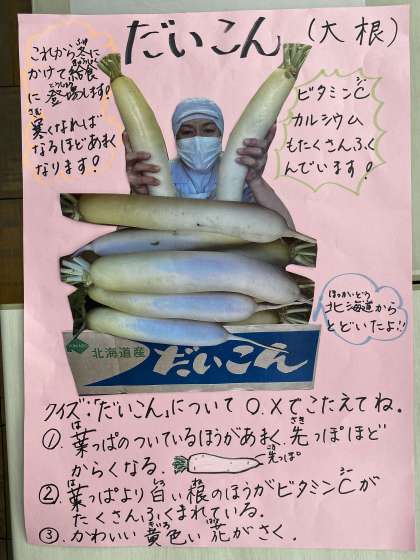 だいこん (大根)
これから冬に
かけて給食
に登場します!
寒くなれば
なるほどあまく
なります!
ビタミンC
カルシウム
もたくさんふく
んでいます!
北海道から
とどいたよ!!
北海道産 だいこん
クイズ:「だいこん」について ○.×でこたえてね。
①.葉っぱのついているほうがあまく、先っぽほど
からくなる。
先っぽ
②.葉っぱより白い根のほうがビタミンCが
たくさんふくまれている。
③.かわいい黄色い花がさく.